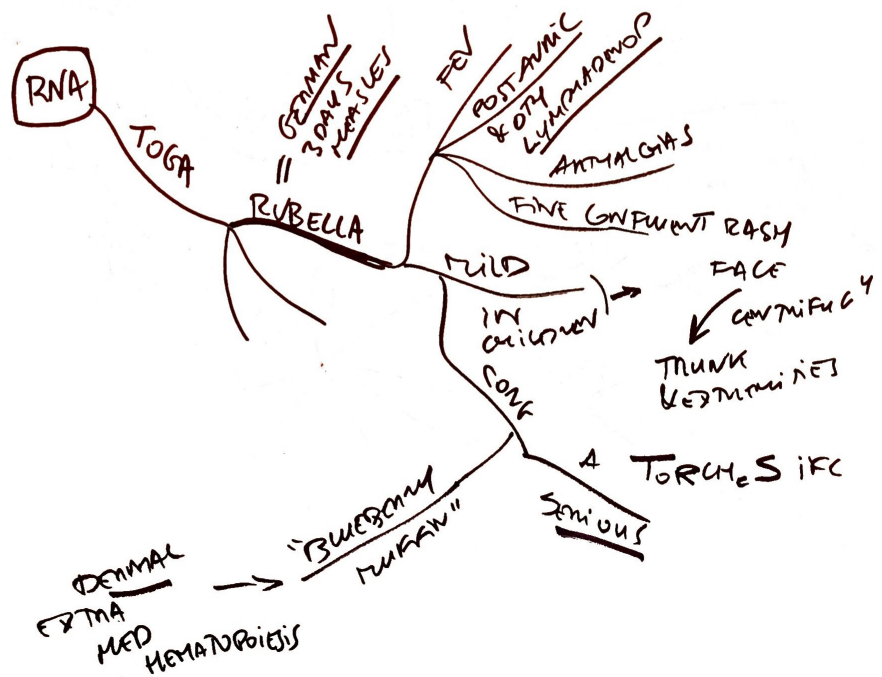 RNA
TOGA
RUBELLA
=
GERMAN
3 DAYS
MEASLES
FEV
POST AURIC
& OTH
LYMPHADENOP
ARTHALGIAS
FINE CONFLUENT RASH
FACE
CENTRIFUG
TRUNK
& EXTREMITIES
MILD
IN
CHILDREN
CONG
A TORCHES IFC
SERIOUS
"BLUEBERRY
MUFFIN"
DERMAL
EXTRA
MED
HEMATOPOIESIS